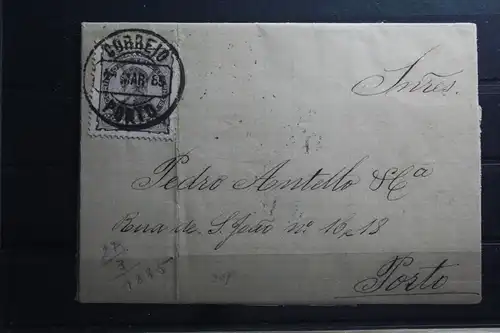 CORREIO
MAR 85
PORTO
Snres.
Pedro Antello & Cª
Rua de S. João nº 16, 18
Porto
3
1885